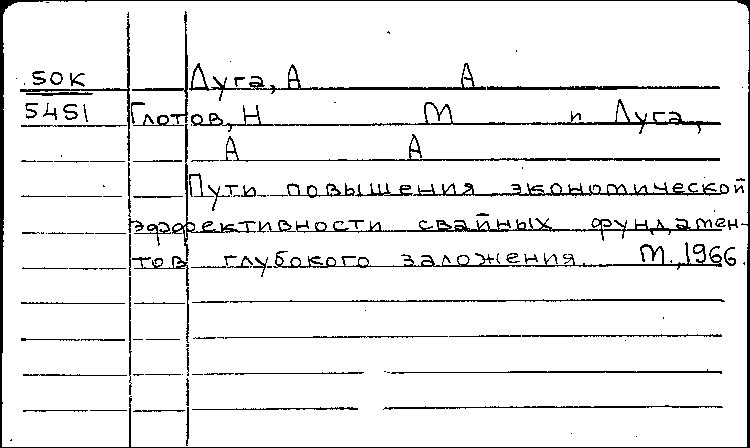 50К Луга, А А
5451 Глотов, Н М и Луга,
А А
Пути повышения экономической
эффективности свайных фундамен-
тов глубокого заложения М., 1966.